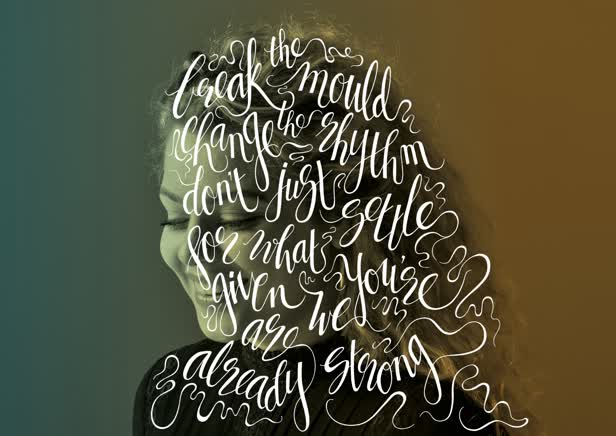 break the mould
change the rhythm
don't just settle
for what you're
given we
are
already strong